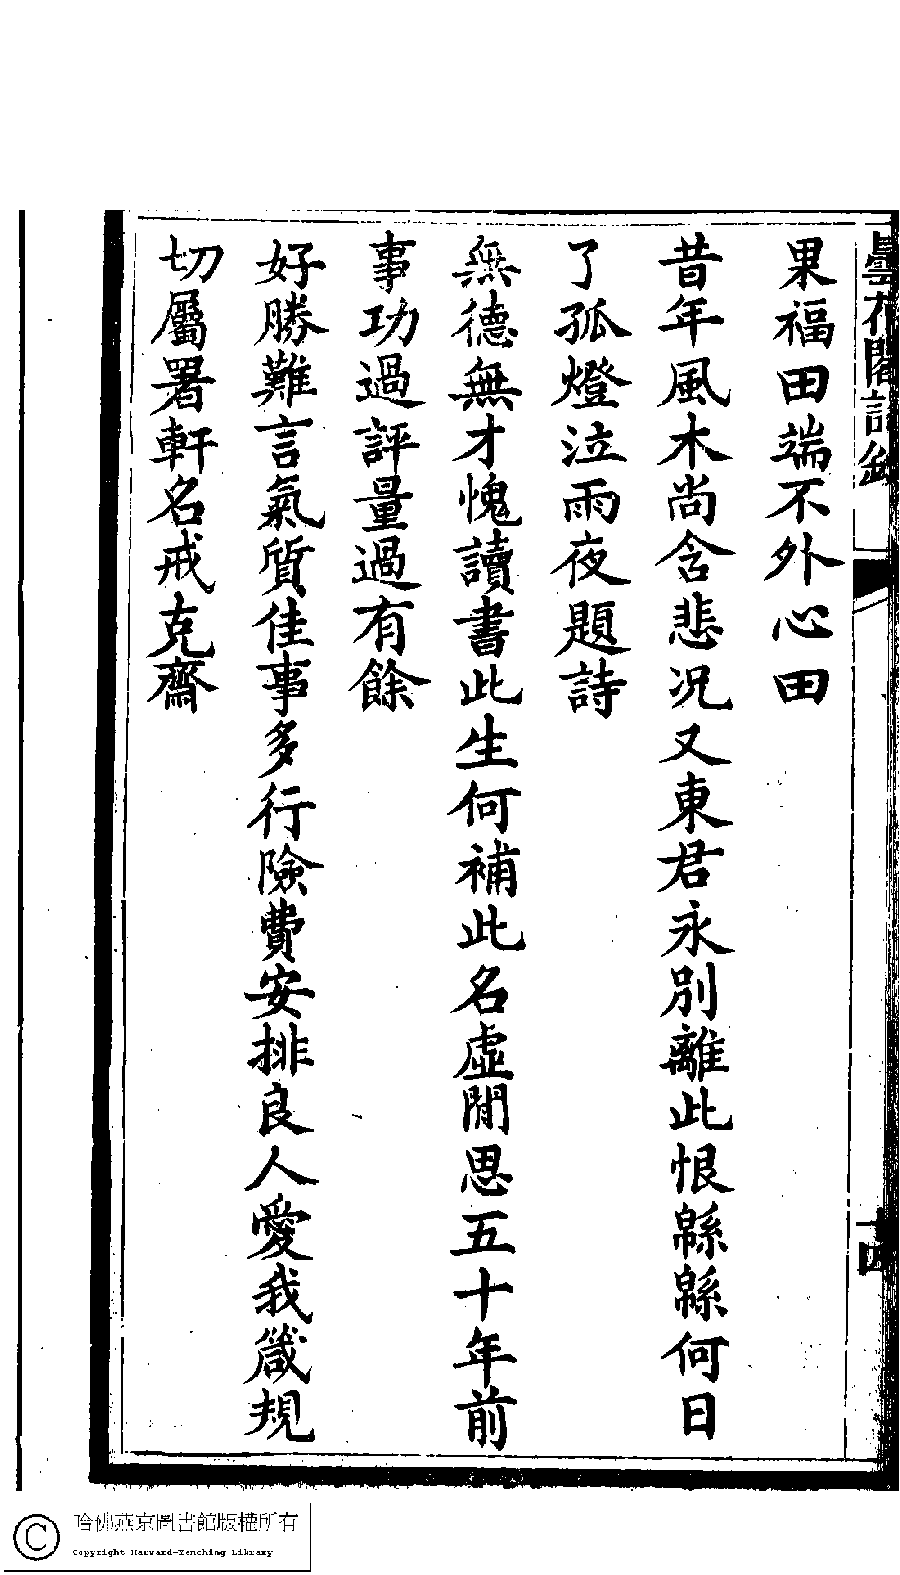 曇花閣詩鈔
十四
果福田端不外心田
昔年風木尚含悲况又東君永別離此恨緜緜何日
了孤燈泣雨夜題詩
無德無才愧讀書此生何補此名虛閒思五十年前
事功過評量過有餘
好勝難言氣質佳事多行險費安排良人愛我箴規
切屬署軒名戒克齋
哈佛燕京圖書館版權所有
Copyright Harvard-Yenching Library